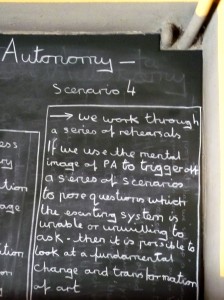 Autonomy –
Scenario 4
→ we work through
a series of rehearsals
If we use the mental
image of PA to trigger off
a series of scenarios
to pose questions which
the existing system is
unable or unwilling to
ask - then it is possible to
look at a fundamental
change and transformation
of art
ess
ition
age
ition